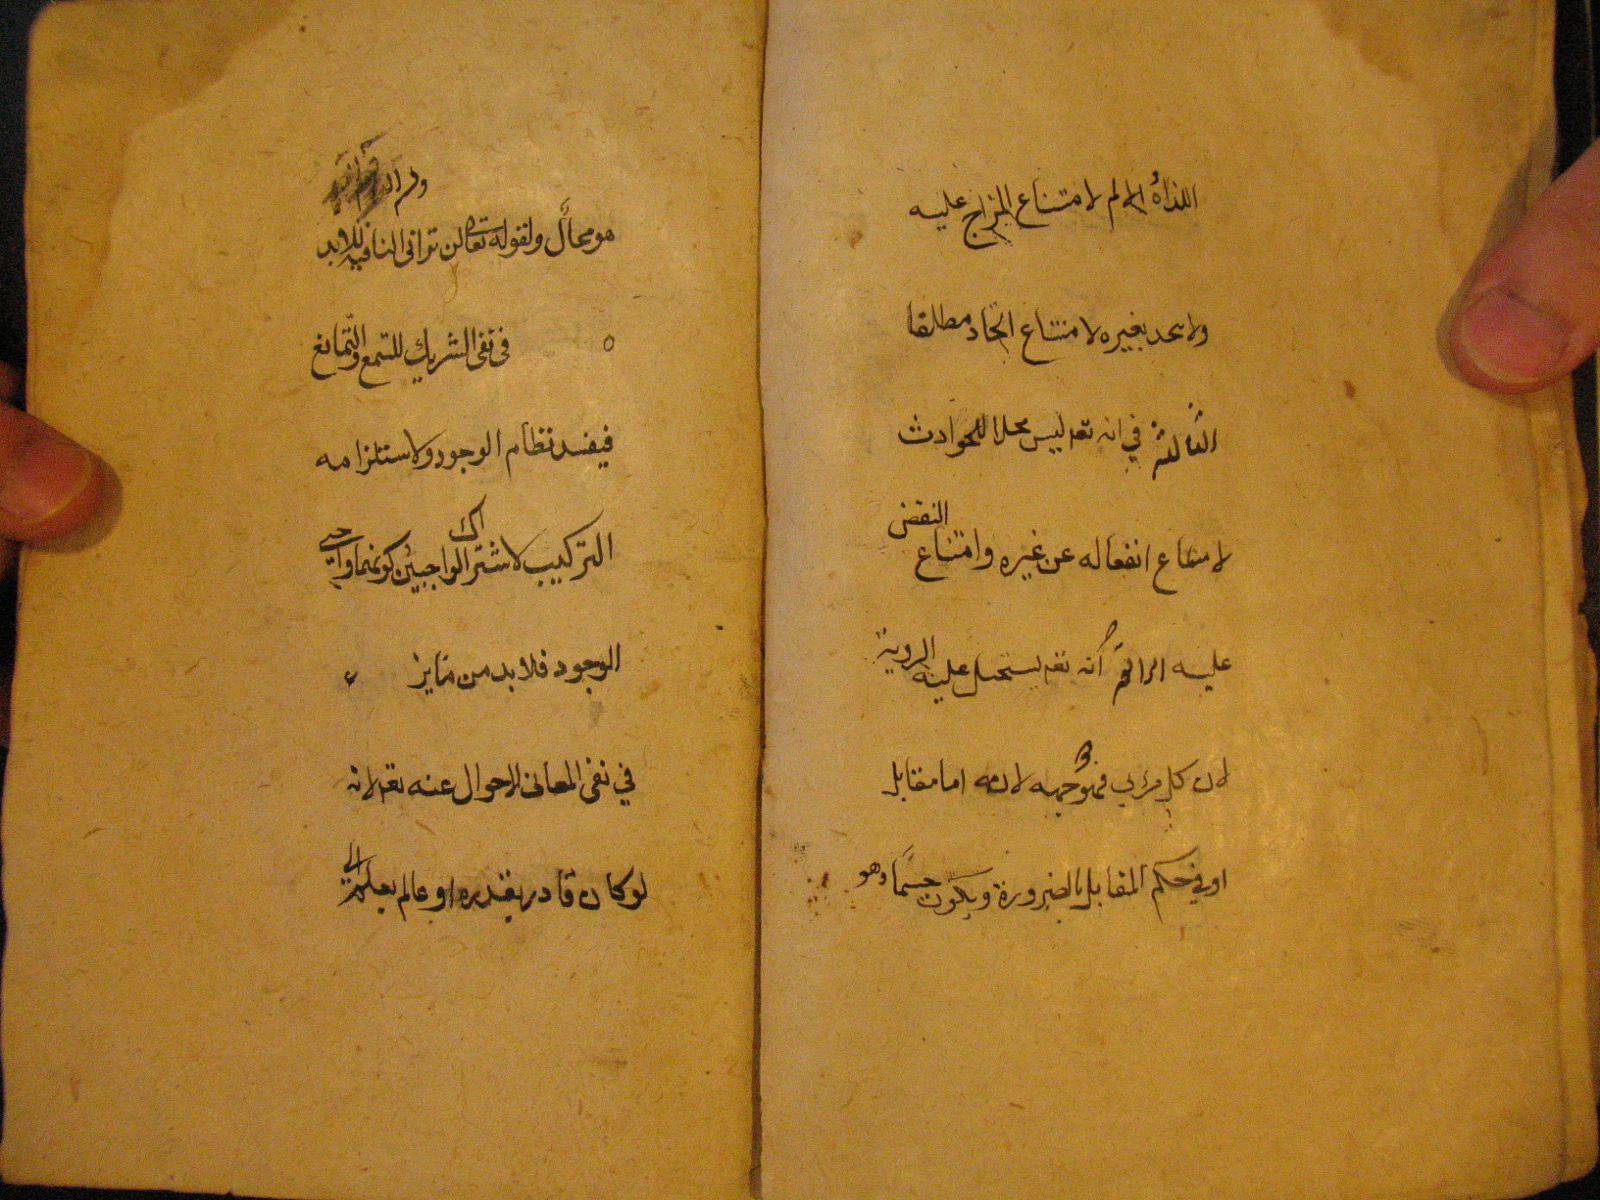 اللذاة الالم لامتناع المزاج عليه
ولا يتحد بغيره لامتناع اتحاد مطلقا
الثالثة في انه تعه ليس محلا للحوادث
لامتناع انفعاله عن غيره وامتناع النقض
عليه انه تعه يستحيل عليه الروية
لان كل مرئي فهو جهه لانه اما مقابل
او في حكم المقابل بالضرورة ويكون جسما وهو
هو محال ولقوله تعالى لن تراني النافيه للابد
في نفي الشريك للتمع والتمانع
فيفسد نظام الوجود ولاستلزامه
التركيب لاشتراك الواجبين كونهما واجبي
الوجود فلا بد من مايز
في نفي المعاني الاحوال عنه تعه لانه
لو كان قادر بقدره او عالم بعلم